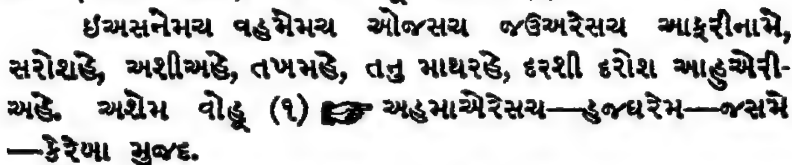 ઈઅસનેમચ વહમેમચ ઓજસચ જઉઅરેસચ આફરીનામે,
સરોશહે, અશીઅહે, તખમહે, તનુ માથરહે, દરશી દરોશ આહુએરી-
અહે. અશેમ વોહૂ (૧) ☞ અહમાએરેસચ—હજઘરેમ—જસમે
—કેરેબા મુજદ.